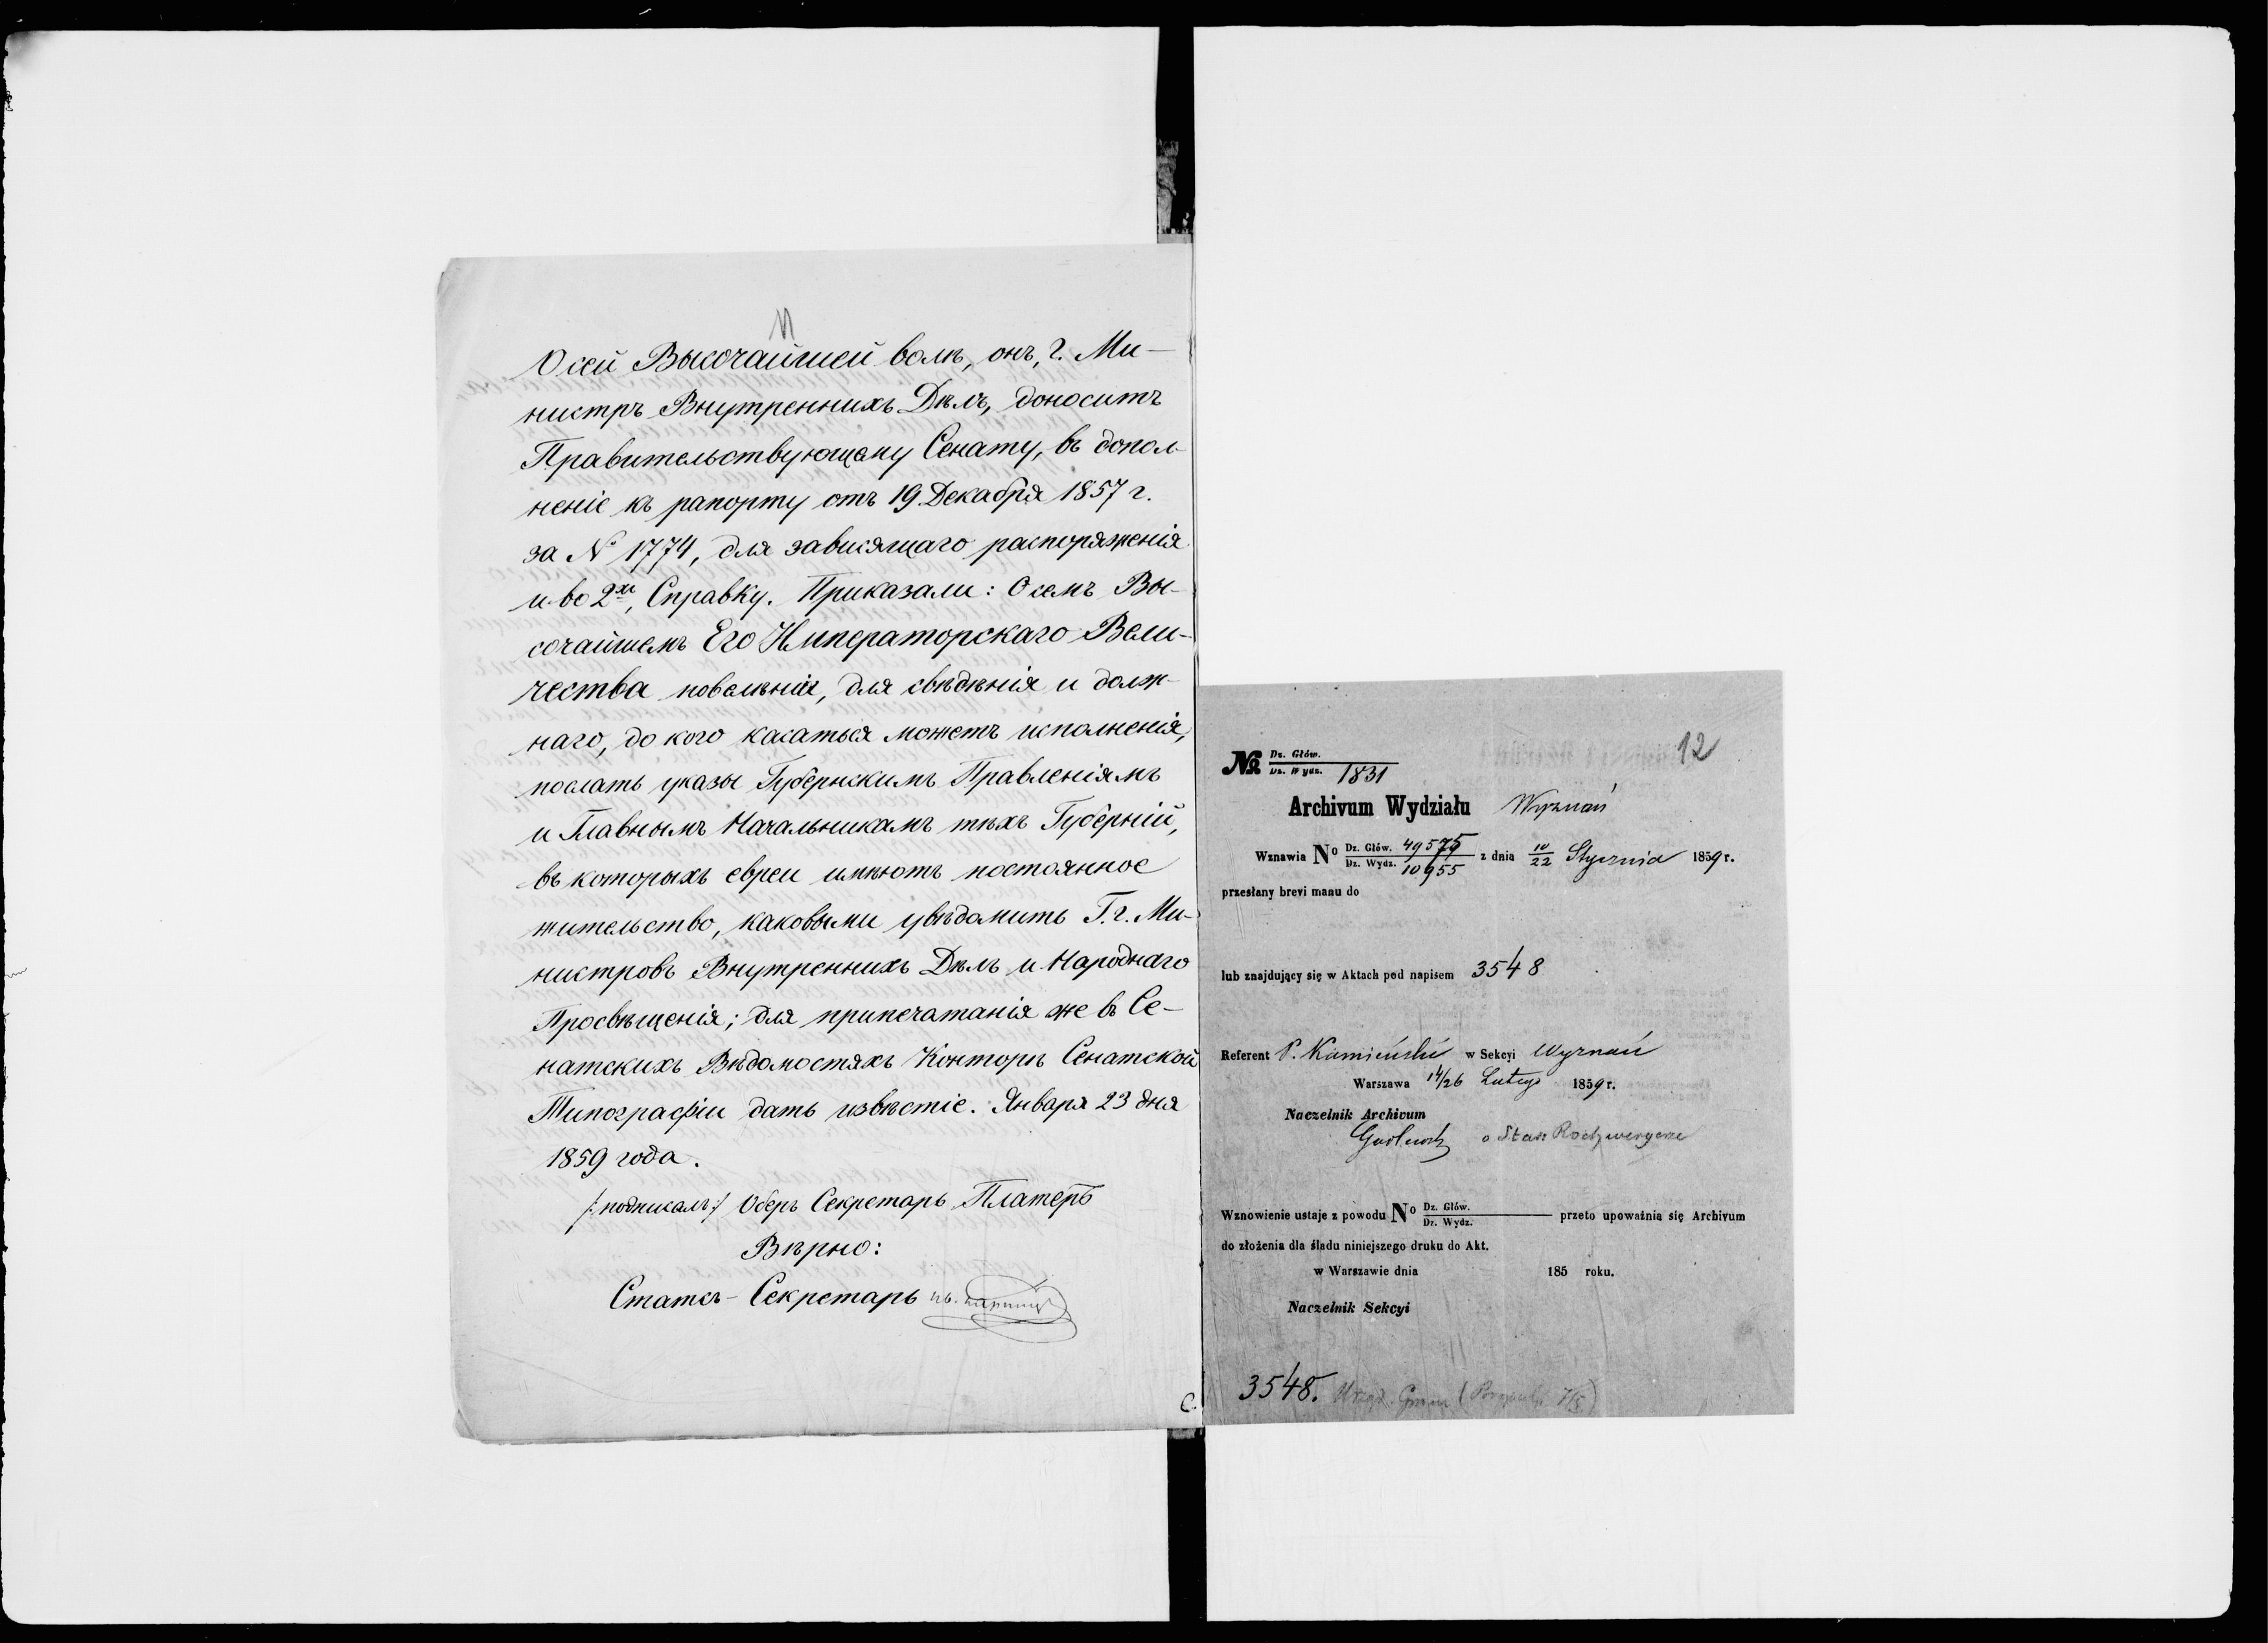 11
О сей Высочайшей волѣ, онъ, г. Ми-
нистръ Внутреннихъ Дѣлъ, доноситъ
Правительствующему Сенату, въ допол-
неніе къ рапорту отъ 19 Декабря 1857 г.
за № 1774, для зависящаго распоряженія
и во 2хъ, Справку. Приказали: О семъ Вы-
сочайшемъ Его Императорскаго Вели-
чества повелѣніи, для свѣдѣнія и долж-
наго, до кого касаться можетъ исполненія,
послать указы Губернскимъ Правленіямъ
и Главнымъ Начальникамъ тѣхъ Губерній,
въ которыхъ евреи имѣютъ постоянное
жительство, каковыми увѣдомить Г.г. Ми-
нистровъ Внутреннихъ Дѣлъ и Народнаго
Просвѣщенія; для припечатанія же въ Се-
натскихъ Вѣдомостяхъ Конторѣ Сенатской
Типографіи дать извѣстіе. Января 23 дня
1859 года.
/:подписалъ:/ Оберъ Секретарь Платеръ
Вѣрно:
Статсъ-Секретарь
С.
12
№ Dz. Głów.
Dz. Wydz. 1831
Archivum Wydziału Wyznań
Wznawia No Dz. Głów. 49575 z dnia 10/22 Stycznia 1859 r.
Dz. Wydz. 10955
przesłany brevi manu do
lub znajdujący się w Aktach pod napisem 3548
Referent P. Kamiński w Sekcyi Wyznań
Warszawa 14/26 Lutego 1859 r.
Naczelnik Archivum
o Star: Rochweryerze
Wznowienie ustaje z powodu No Dz. Głów. przeto upoważnia się Archivum
Dz. Wydz.
do złożenia dla śladu niniejszego druku do Akt.
w Warszawie dnia 185 roku.
Naczelnik Sekcyi
3548.